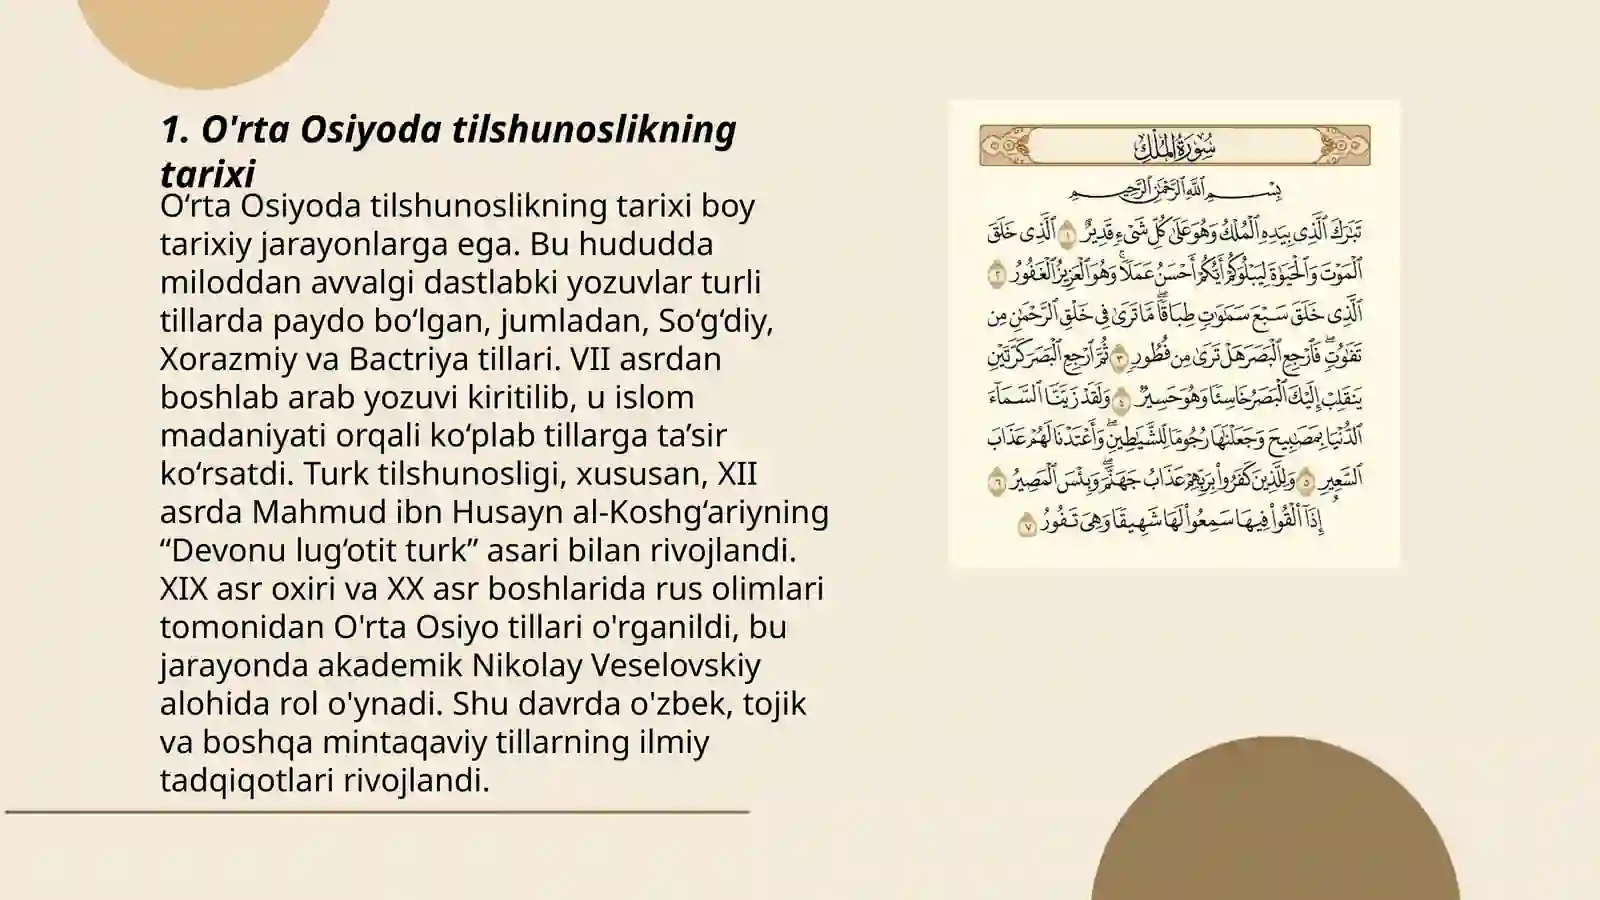 1. O'rta Osiyoda tilshunoslikning
tarixi
Oʻrta Osiyoda tilshunoslikning tarixi boy
tarixiy jarayonlarga ega. Bu hududda
miloddan avvalgi dastlabki yozuvlar turli
tillarda paydo boʻlgan, jumladan, Soʻgʻdiy,
Xorazmiy va Bactriya tillari. VII asrdan
boshlab arab yozuvi kiritilib, u islom
madaniyati orqali koʻplab tillarga taʼsir
koʻrsatdi. Turk tilshunosligi, xususan, XII
asrda Mahmud ibn Husayn al-Koshgʻariyning
“Devonu lugʻotit turk” asari bilan rivojlandi.
XIX asr oxiri va XX asr boshlarida rus olimlari
tomonidan O'rta Osiyo tillari o'rganildi, bu
jarayonda akademik Nikolay Veselovskiy
alohida rol o'ynadi. Shu davrda o'zbek, tojik
va boshqa mintaqaviy tillarning ilmiy
tadqiqotlari rivojlandi.
سُورَةُ المُلۡكِ
بِسۡمِ ٱللَّهِ ٱلرَّحۡمَٰنِ ٱلرَّحِيمِ
تَبَٰرَكَ ٱلَّذِي بِيَدِهِ ٱلۡمُلۡكُ وَهُوَ عَلَىٰ كُلِّ شَيۡءٖ قَدِيرٌ ١ ٱلَّذِي خَلَقَ
ٱلۡمَوۡتَ وَٱلۡحَيَوٰةَ لِيَبۡلُوَكُمۡ أَيُّكُمۡ أَحۡسَنُ عَمَلٗاۚ وَهُوَ ٱلۡعَزِيزُ ٱلۡغَفُورُ ٢
ٱلَّذِي خَلَقَ سَبۡعَ سَمَٰوَٰتٖ طِبَاقٗاۖ مَّا تَرَىٰ فِي خَلۡقِ ٱلرَّحۡمَٰنِ مِن
تَفَٰوُتٖۖ فَٱرۡجِعِ ٱلۡبَصَرَ هَلۡ تَرَىٰ مِن فُطُورٖ ٣ ثُمَّ ٱرۡجِعِ ٱلۡبَصَرَ كَرَّتَيۡنِ
يَنقَلِبۡ إِلَيۡكَ ٱلۡبَصَرُ خَاسِئٗا وَهُوَ حَسِيرٞ ٤ وَلَقَدۡ زَيَّنَّا ٱلسَّمَآءَ
ٱلدُّنۡيَا بِمَصَٰبِيحَ وَجَعَلۡنَٰهَا رُجُومٗا لِّلشَّيَٰطِينِۖ وَأَعۡتَدۡنَا لَهُمۡ عَذَابَ
ٱلسَّعِيرِ ٥ وَلِلَّذِينَ كَفَرُواْ بِرَبِّهِمۡ عَذَابُ جَهَنَّمَۖ وَبِئۡسَ ٱلۡمَصِيرُ ٦
إِذَآ أُلۡقُواْ فِيهَا سَمِعُواْ لَهَا شَهِيقٗا وَهِيَ تَفُورُ ٧